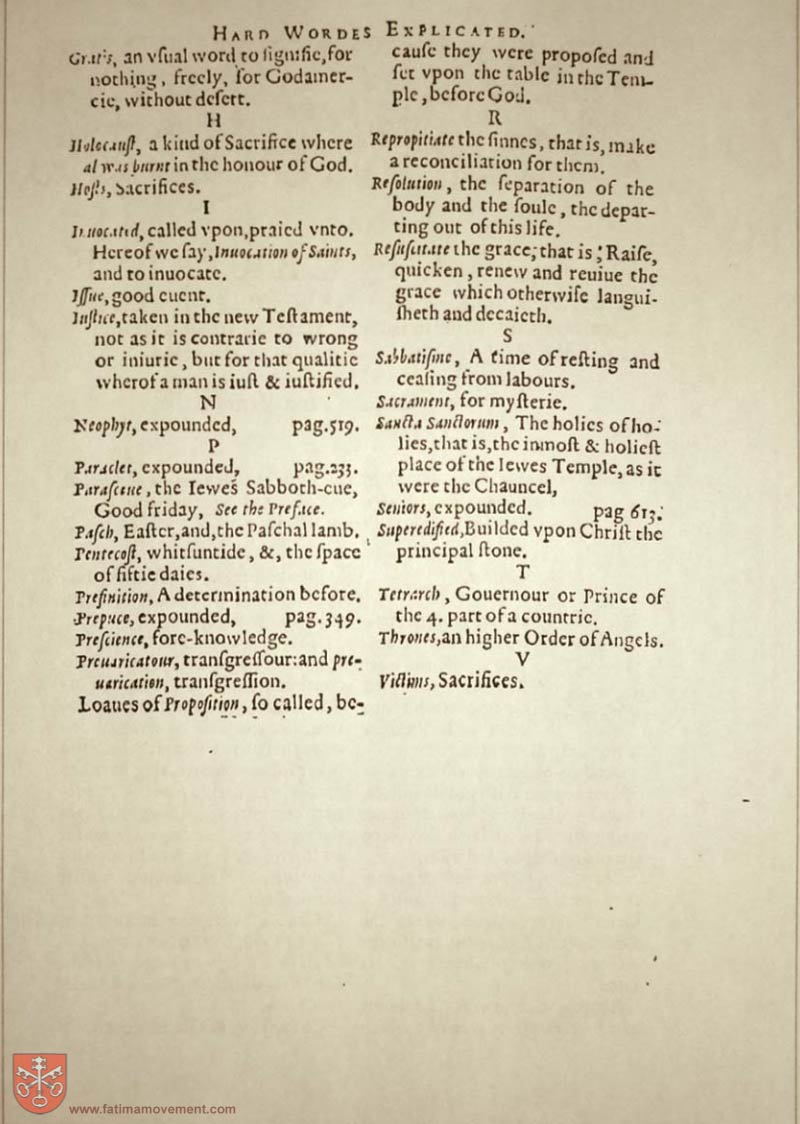 HARD WORDES EXPLICATED.
Gratis, an vſual word to ſignifie, for
nothing, freely, for Godamer-
cie, without deſert.
H
Holocauſt, a kind of Sacrifice where
al was burnt in the honour of God.
Hoſts, Sacrifices.
I
Inuocated, called vpon, praied vnto.
Hereof we ſay, Inuocation of Saints,
and to inuocate.
Iſſue, good euent.
Iuſtice, taken in the new Teſtament,
not as it is contrarie to wrong
or iniurie, but for that qualitie
wherof a man is iuſt & iuſtified.
N
Neophyt, expounded, pag.519.
P
Paraclet, expounded, pag.233.
Paraſceue, the Iewes Sabboth-eue,
Good friday, See the Preface.
Paſch, Eaſter, and, the Paſchal lamb.
Pentecoſt, whitſuntide, &, the ſpace
of fiftie daies.
Prefinition, A determination before.
Prepuce, expounded, pag.349.
Preſcience, fore-knowledge.
Preuaricatour, tranſgreſſour: and pre-
uarication, tranſgreſſion.
Loaues of Propoſition, ſo called, be-
cauſe they were propoſed and
ſet vpon the table in the Tem-
ple, before God.
R
Repropitiate the ſinnes, that is, make
a reconciliation for them.
Reſolution, the ſeparation of the
body and the ſoule, the depar-
ting out of this life.
Reſuſcitate the grace, that is, Raiſe,
quicken, renew and reuiue the
grace which otherwiſe langui-
ſheth and decaieth.
S
Sabbatiſme, A time of reſting and
ceaſing from labours.
Sacrament, for myſterie.
Sancta Sanctorum, The holies of ho-
lies, that is, the inmoſt & holieſt
place of the Iewes Temple, as it
were the Chauncel,
Seniors, expounded. pag 613.
Superedified, Builded vpon Chriſt the
principal ſtone.
T
Tetrarch, Gouernour or Prince of
the 4. part of a countrie.
Thrones, an higher Order of Angels.
V
Victims, Sacrifices.
www.fatimamovement.com